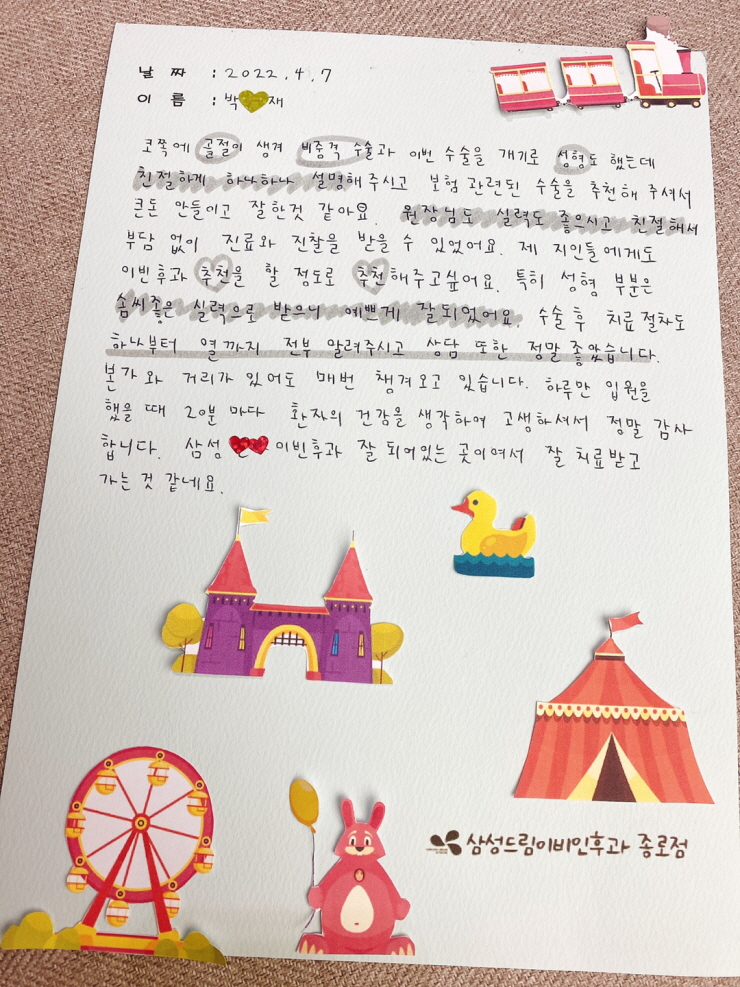 날 짜 : 2022.4.7
이 름 : 박 재
코쪽에 골절이 생겨 비중격 수술과 이번 수술을 개기로 성형도 했는데
친절하게 하나하나 설명해주시고 보험 관련된 수술을 추천해 주셔서
큰돈 안들이고 잘한것 같아요. 원장님도 실력도 좋으시고 친절해서
부담 없이 진료와 진찰을 받을 수 있었어요. 제 지인들에게도
이빈후과 추천을 할 정도로 추천해주고싶어요. 특히 성형 부분은
솜씨좋은 실력으로 받으니 예쁘게 잘되었어요. 수술 후 치료 절차도
하나부터 열까지 전부 알려주시고 상담 또한 정말 좋았습니다.
본가와 거리가 있어도 매번 챙겨오고 있습니다. 하루만 입원을
했을 때 20분 마다 환자의 건강을 생각하여 고생하셔서 정말 감사
합니다. 삼성 이빈후과 잘 되어있는 곳이여서 잘 치료받고
가는 것 같네요.
삼성드림이비인후과 종로점